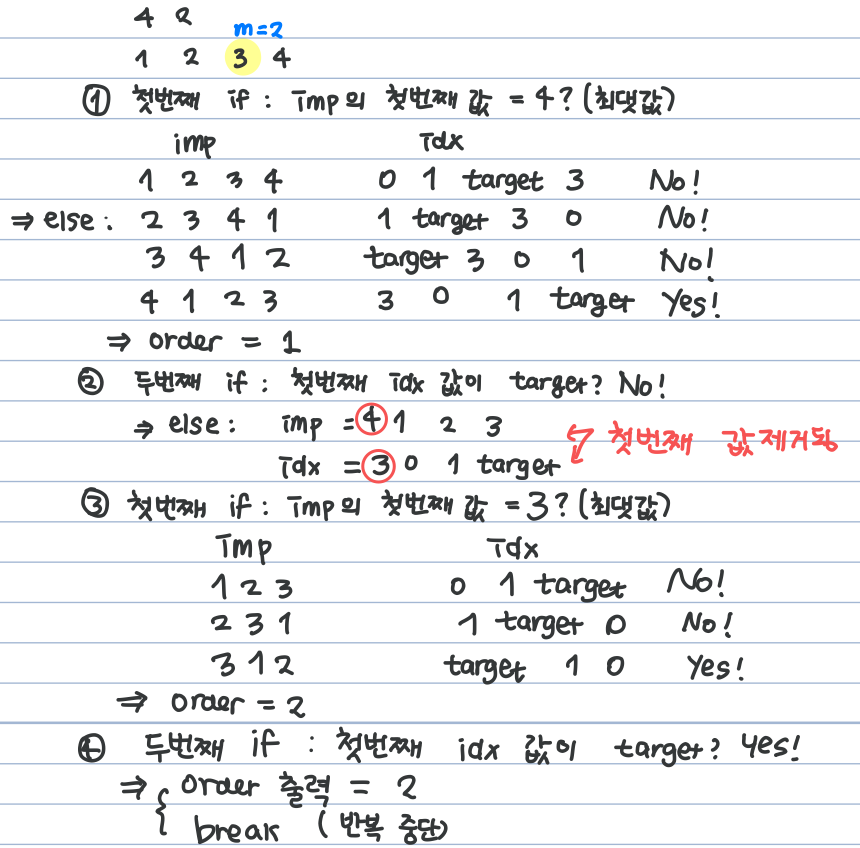 4 2
m=2
1 2 3 4
① 첫번째 if : imp의 첫번째 값 = 4? (최댓값)
imp idx
1 2 3 4 0 1 target 3 No!
⇒ else : 2 3 4 1 1 target 3 0 No!
3 4 1 2 target 3 0 1 No!
4 1 2 3 3 0 1 target Yes!
⇒ order = 1
② 두번째 if : 첫번째 idx 값이 target? No!
⇒ else : imp = 4 1 2 3
첫번째 값 제거됨
idx = 3 0 1 target
③ 첫번째 if : imp의 첫번째 값 = 3? (최댓값)
imp idx
1 2 3 0 1 target No!
2 3 1 1 target 0 No!
3 1 2 target 1 0 Yes!
⇒ order = 2
④ 두번째 if : 첫번째 idx 값이 target? Yes!
⇒ order 출력 = 2
break (반복 중단)